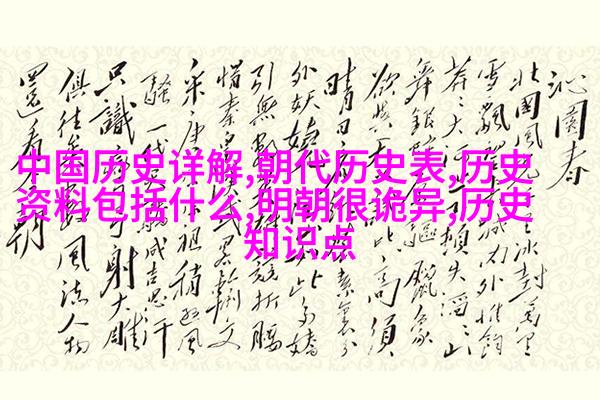 中国历史详解,朝代历史表,历史
资料包括什么,明朝很诡异,历史
知识点
沁園春
北国風光 冰封萬里
雪飄 城内外惟餘
莽莽大河 頓失滔滔
舞銀蛇 臘象
欲與天公 比高須
晴日 素裹分
外妖嬈 如此多嬌
引無數 競折腰
惜秦皇 輸文
采唐宗 祖稍遜風
騷一代 成吉思汗
只識 射大雕
俱往矣數風流人物
還看 朝